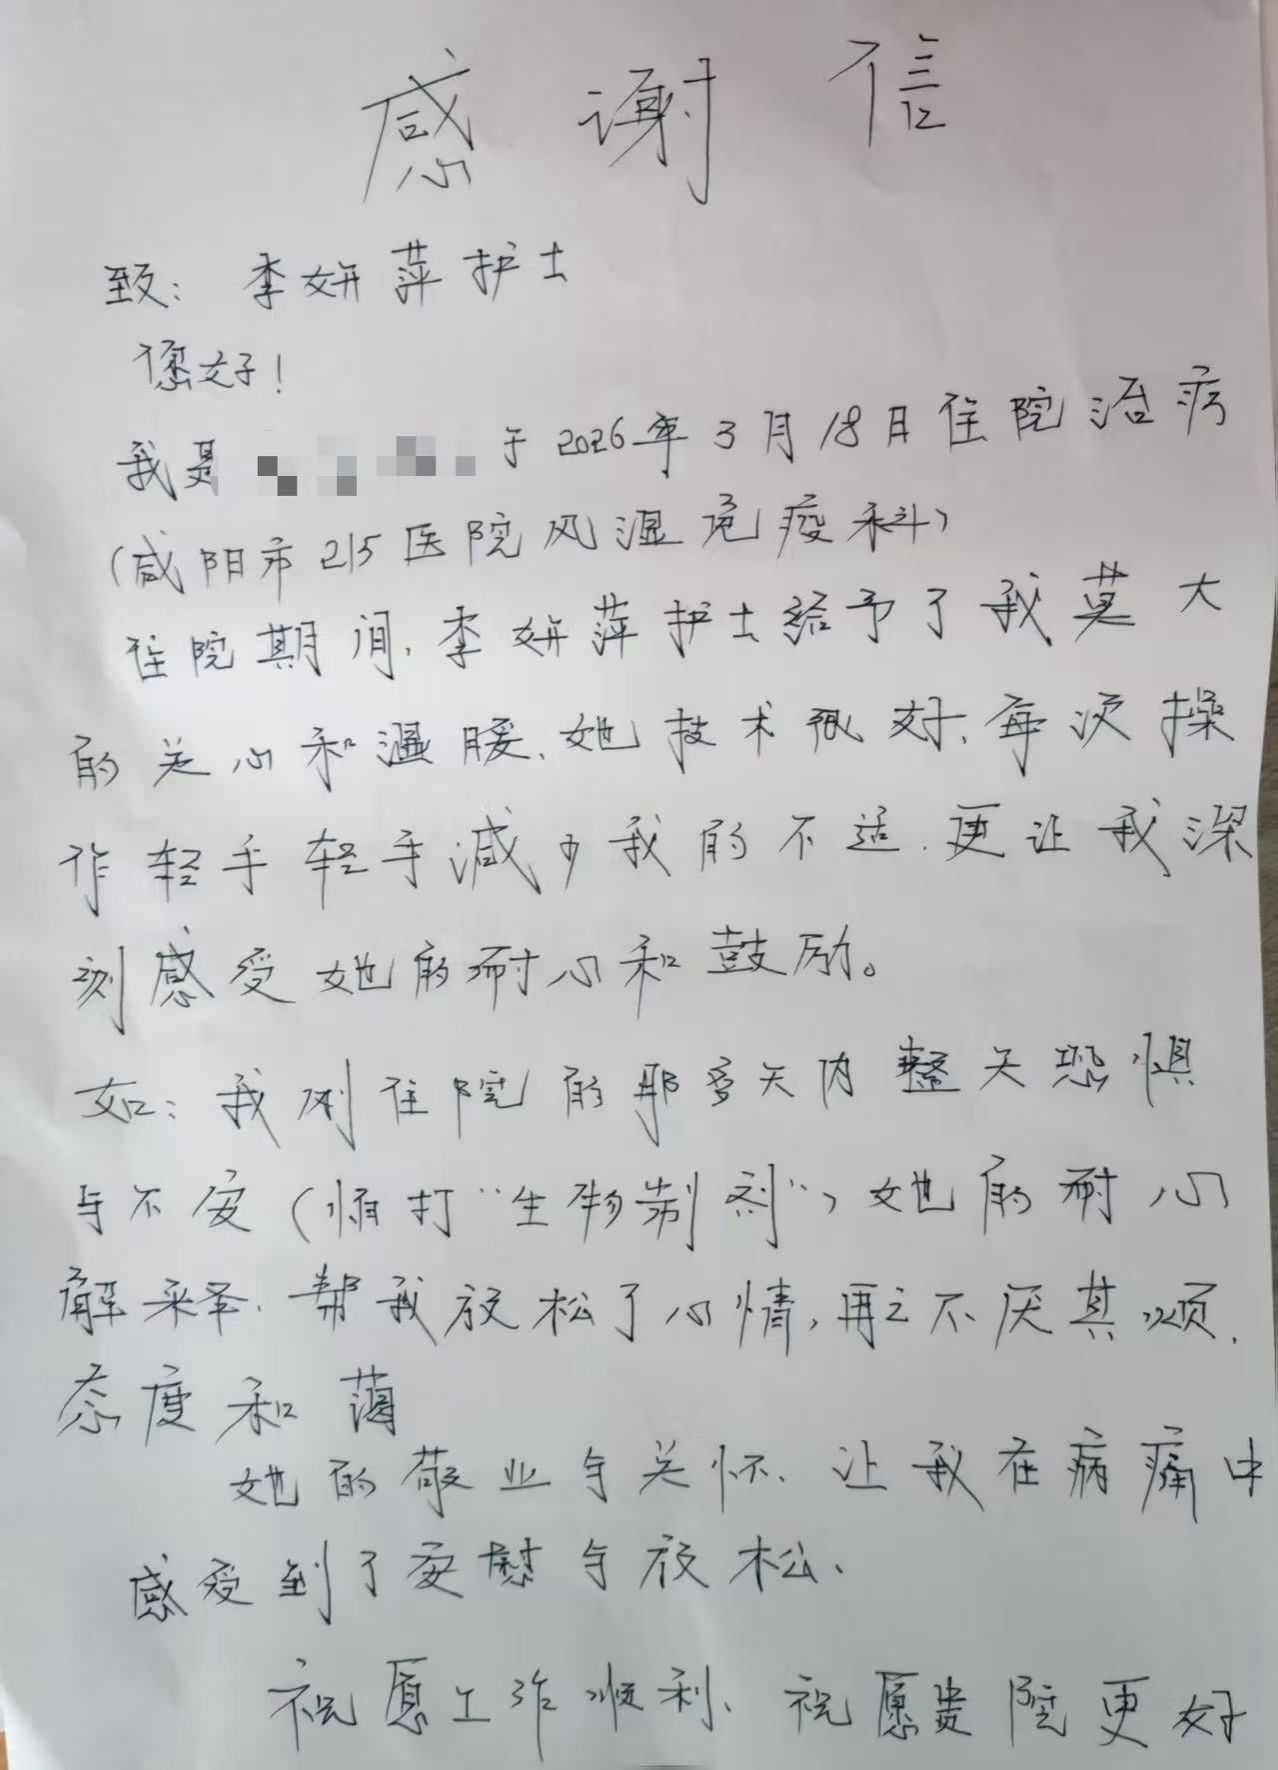 感谢信
致：李妍萍护士
您好！
我是 于2026年3月18日住院治病
（咸阳市215医院风湿免疫科）
住院期间，李妍萍护士给予了我莫大
的关心和温暖、她技术很好，每次操
作轻手轻手减少我的不适，更让我深
刻感受她的耐心和鼓励。
如：我刚住院的那多天内整天恐惧
与不安（怕打“生物制剂”）她的耐心
解释，帮我放松了心情，再之不厌其烦，
态度和蔼
她的敬业与关怀、让我在病痛中
感受到了安慰与放松、
祝愿工作顺利、祝愿贵院更好